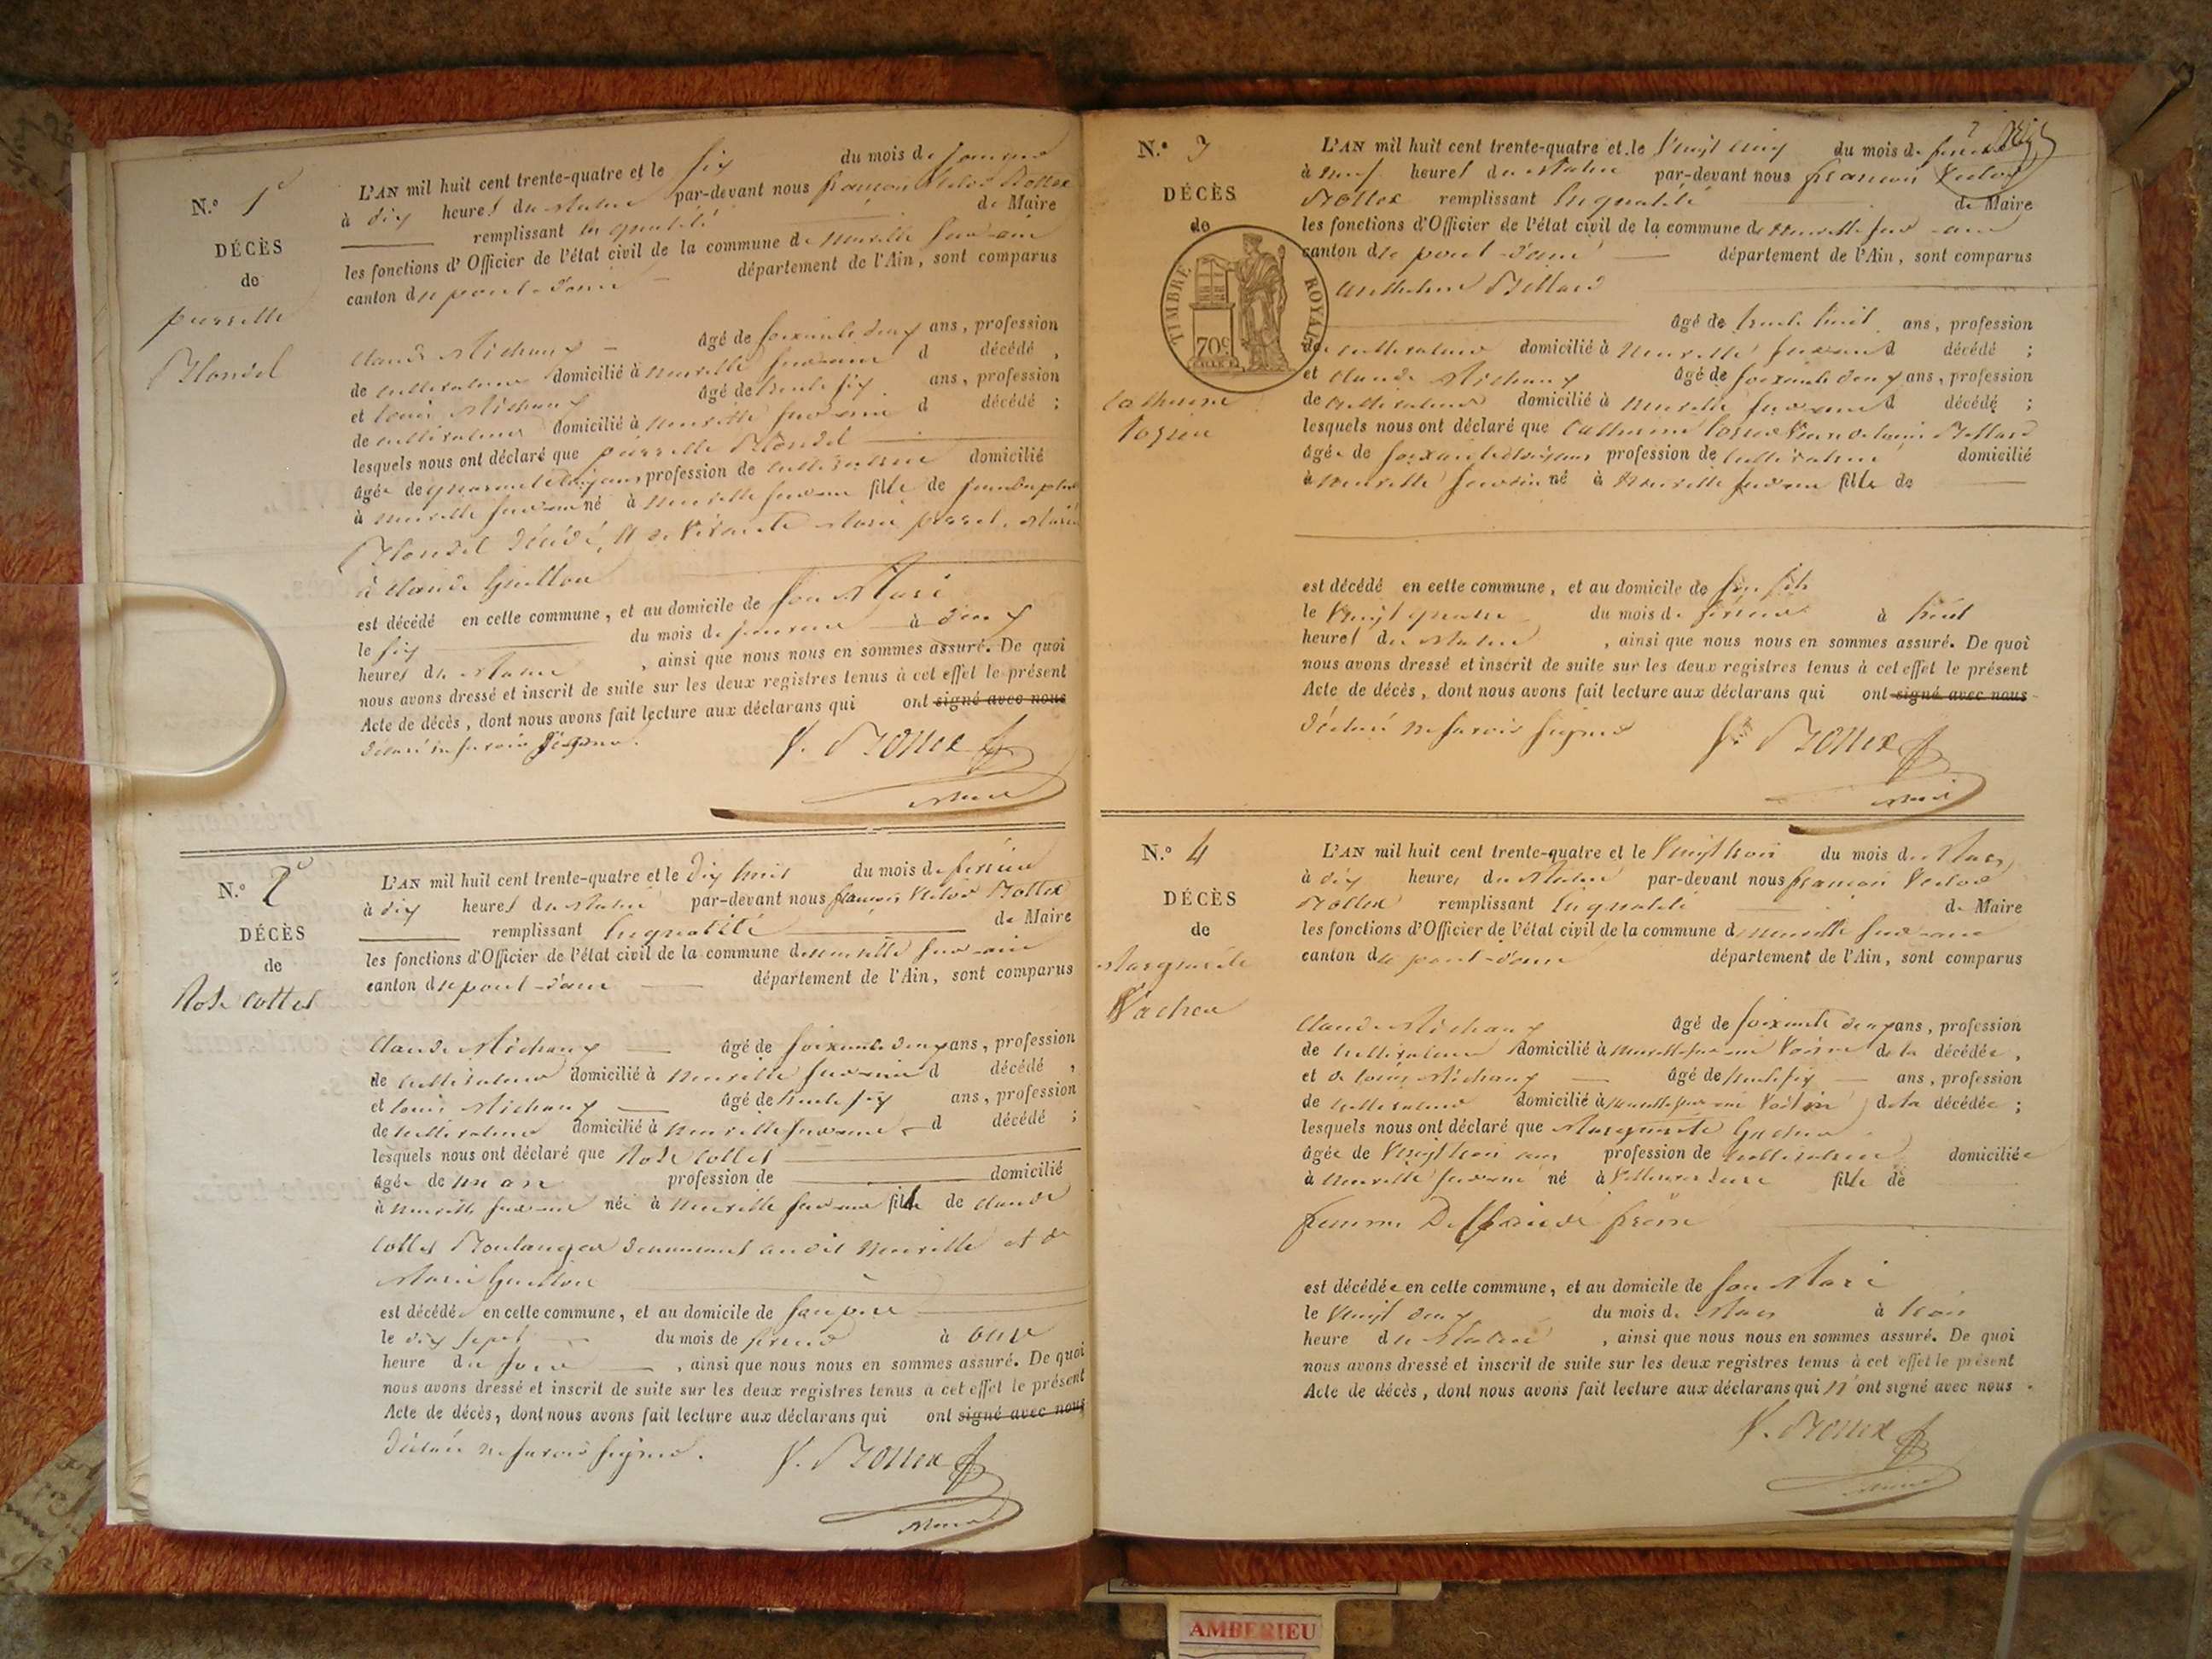 N.° 1
DÉCÈS
de
pierrette
Blondel
L'AN mil huit cent trente-quatre et le six du mois de janvier
à dix heures du matin par-devant nous françois Victor Bottex
remplissant en qualité de Maire
les fonctions d'Officier de l'état civil de la commune de neuville sur ain
canton de pont-d'ain département de l'Ain, sont comparus
Claude Michaux âgé de soixante deux ans, profession
de cultivateur domicilié à neuville sur ain d décédé ,
et louis Michaux âgé de trente six ans, profession
de cultivateur domicilié à neuville sur ain d décédé ;
lesquels nous ont déclaré que pierrette Blondel
âgée de quarante ans profession de cultivatrice domicilié
à neuville sur ain né à neuville sur ain fille de
Blondel décédé, et de vivante Marie
à Claude Guillon
est décédé en cette commune, et au domicile de son Mari
le six du mois de janvier à deux
heures du matin , ainsi que nous nous en sommes assuré. De quoi
nous avons dressé et inscrit de suite sur les deux registres tenus à cet effet le présent
Acte de décès, dont nous avons fait lecture aux déclarans qui ont signé avec nous
déclaré ne savoir signer.
V. Bottex
Maire
N.° 2
DÉCÈS
de
Rose Collet
L'AN mil huit cent trente-quatre et le dix huit du mois de février
à dix heures du matin par-devant nous françois Victor Bottex
remplissant en qualité de Maire
les fonctions d'Officier de l'état civil de la commune de neuville sur ain
canton de pont-d'ain département de l'Ain, sont comparus
Claude Michaux âgé de soixante deux ans, profession
de cultivateur domicilié à neuville sur ain d décédé ,
et louis Michaux âgé de trente six ans, profession
de cultivateur domicilié à neuville sur ain d décédé ;
lesquels nous ont déclaré que Rose Collet
âgée de un an profession de domicilié
à neuville sur ain née à neuville sur ain fille de claude
Collet Boulanger demeurant audit neuville et de
Marie Guillon
est décédée en cette commune, et au domicile de son père
le dix sept du mois de février à onze
heure du soir , ainsi que nous nous en sommes assuré. De quoi
nous avons dressé et inscrit de suite sur les deux registres tenus à cet effet le présent
Acte de décès, dont nous avons fait lecture aux déclarans qui ont signé avec nous
déclaré ne savoir signer.
V. Bottex
Maire
N.° 3
DÉCÈS
de
TIMBRE ROYAL
70c
catherine
L'AN mil huit cent trente-quatre et le Vingt cinq du mois de février
à neuf heures du matin par-devant nous françois Victor
Bottex remplissant en qualité de Maire
les fonctions d'Officier de l'état civil de la commune de neuville sur ain
canton de pont-d'ain département de l'Ain, sont comparus
anthelme Billard
âgé de trente huit ans, profession
de cultivateur domicilié à neuville sur ain d décédé ;
et claude Michaux âgé de soixante deux ans, profession
de cultivateur domicilié à neuville sur ain d décédé ;
lesquels nous ont déclaré que Catherine Veuve de louis Billard
âgée de soixante ans profession de cultivatrice domicilié
à neuville sur ain né à neuville sur ain fille de
est décédé en cette commune, et au domicile de son fils
le Vingt quatre du mois de février à huit
heures du matin , ainsi que nous nous en sommes assuré. De quoi
nous avons dressé et inscrit de suite sur les deux registres tenus à cet effet le présent
Acte de décès, dont nous avons fait lecture aux déclarans qui ont signé avec nous
déclaré ne savoir signer
V. Bottex
Maire
N.° 4
DÉCÈS
de
Marguerite
Vacher
L'AN mil huit cent trente-quatre et le Vingt trois du mois de Mars
à dix heures du Matin par-devant nous françois Victor
Bottex remplissant en qualité de Maire
les fonctions d'Officier de l'état civil de la commune de neuville sur ain
canton de pont-d'ain département de l'Ain, sont comparus
Claude Michaux âgé de soixante deux ans, profession
de cultivateur domicilié à neuville sur ain Voisin de la décédée ,
et de louis Michaux âgé de trente six ans, profession
de cultivateur domicilié à neuville sur ain Voisin de la décédée ;
lesquels nous ont déclaré que Marguerite
âgée de Vingt trois ans profession de cultivatrice domiciliée
à neuville sur ain né à fille de
femme De
est décédée en cette commune, et au domicile de son Mari
le Vingt deux du mois de Mars à trois
heure du Matin , ainsi que nous nous en sommes assuré. De quoi
nous avons dressé et inscrit de suite sur les deux registres tenus à cet effet le présent
Acte de décès, dont nous avons fait lecture aux déclarans qui n'ont signé avec nous .
V. Bottex
Maire
AMBERIEU